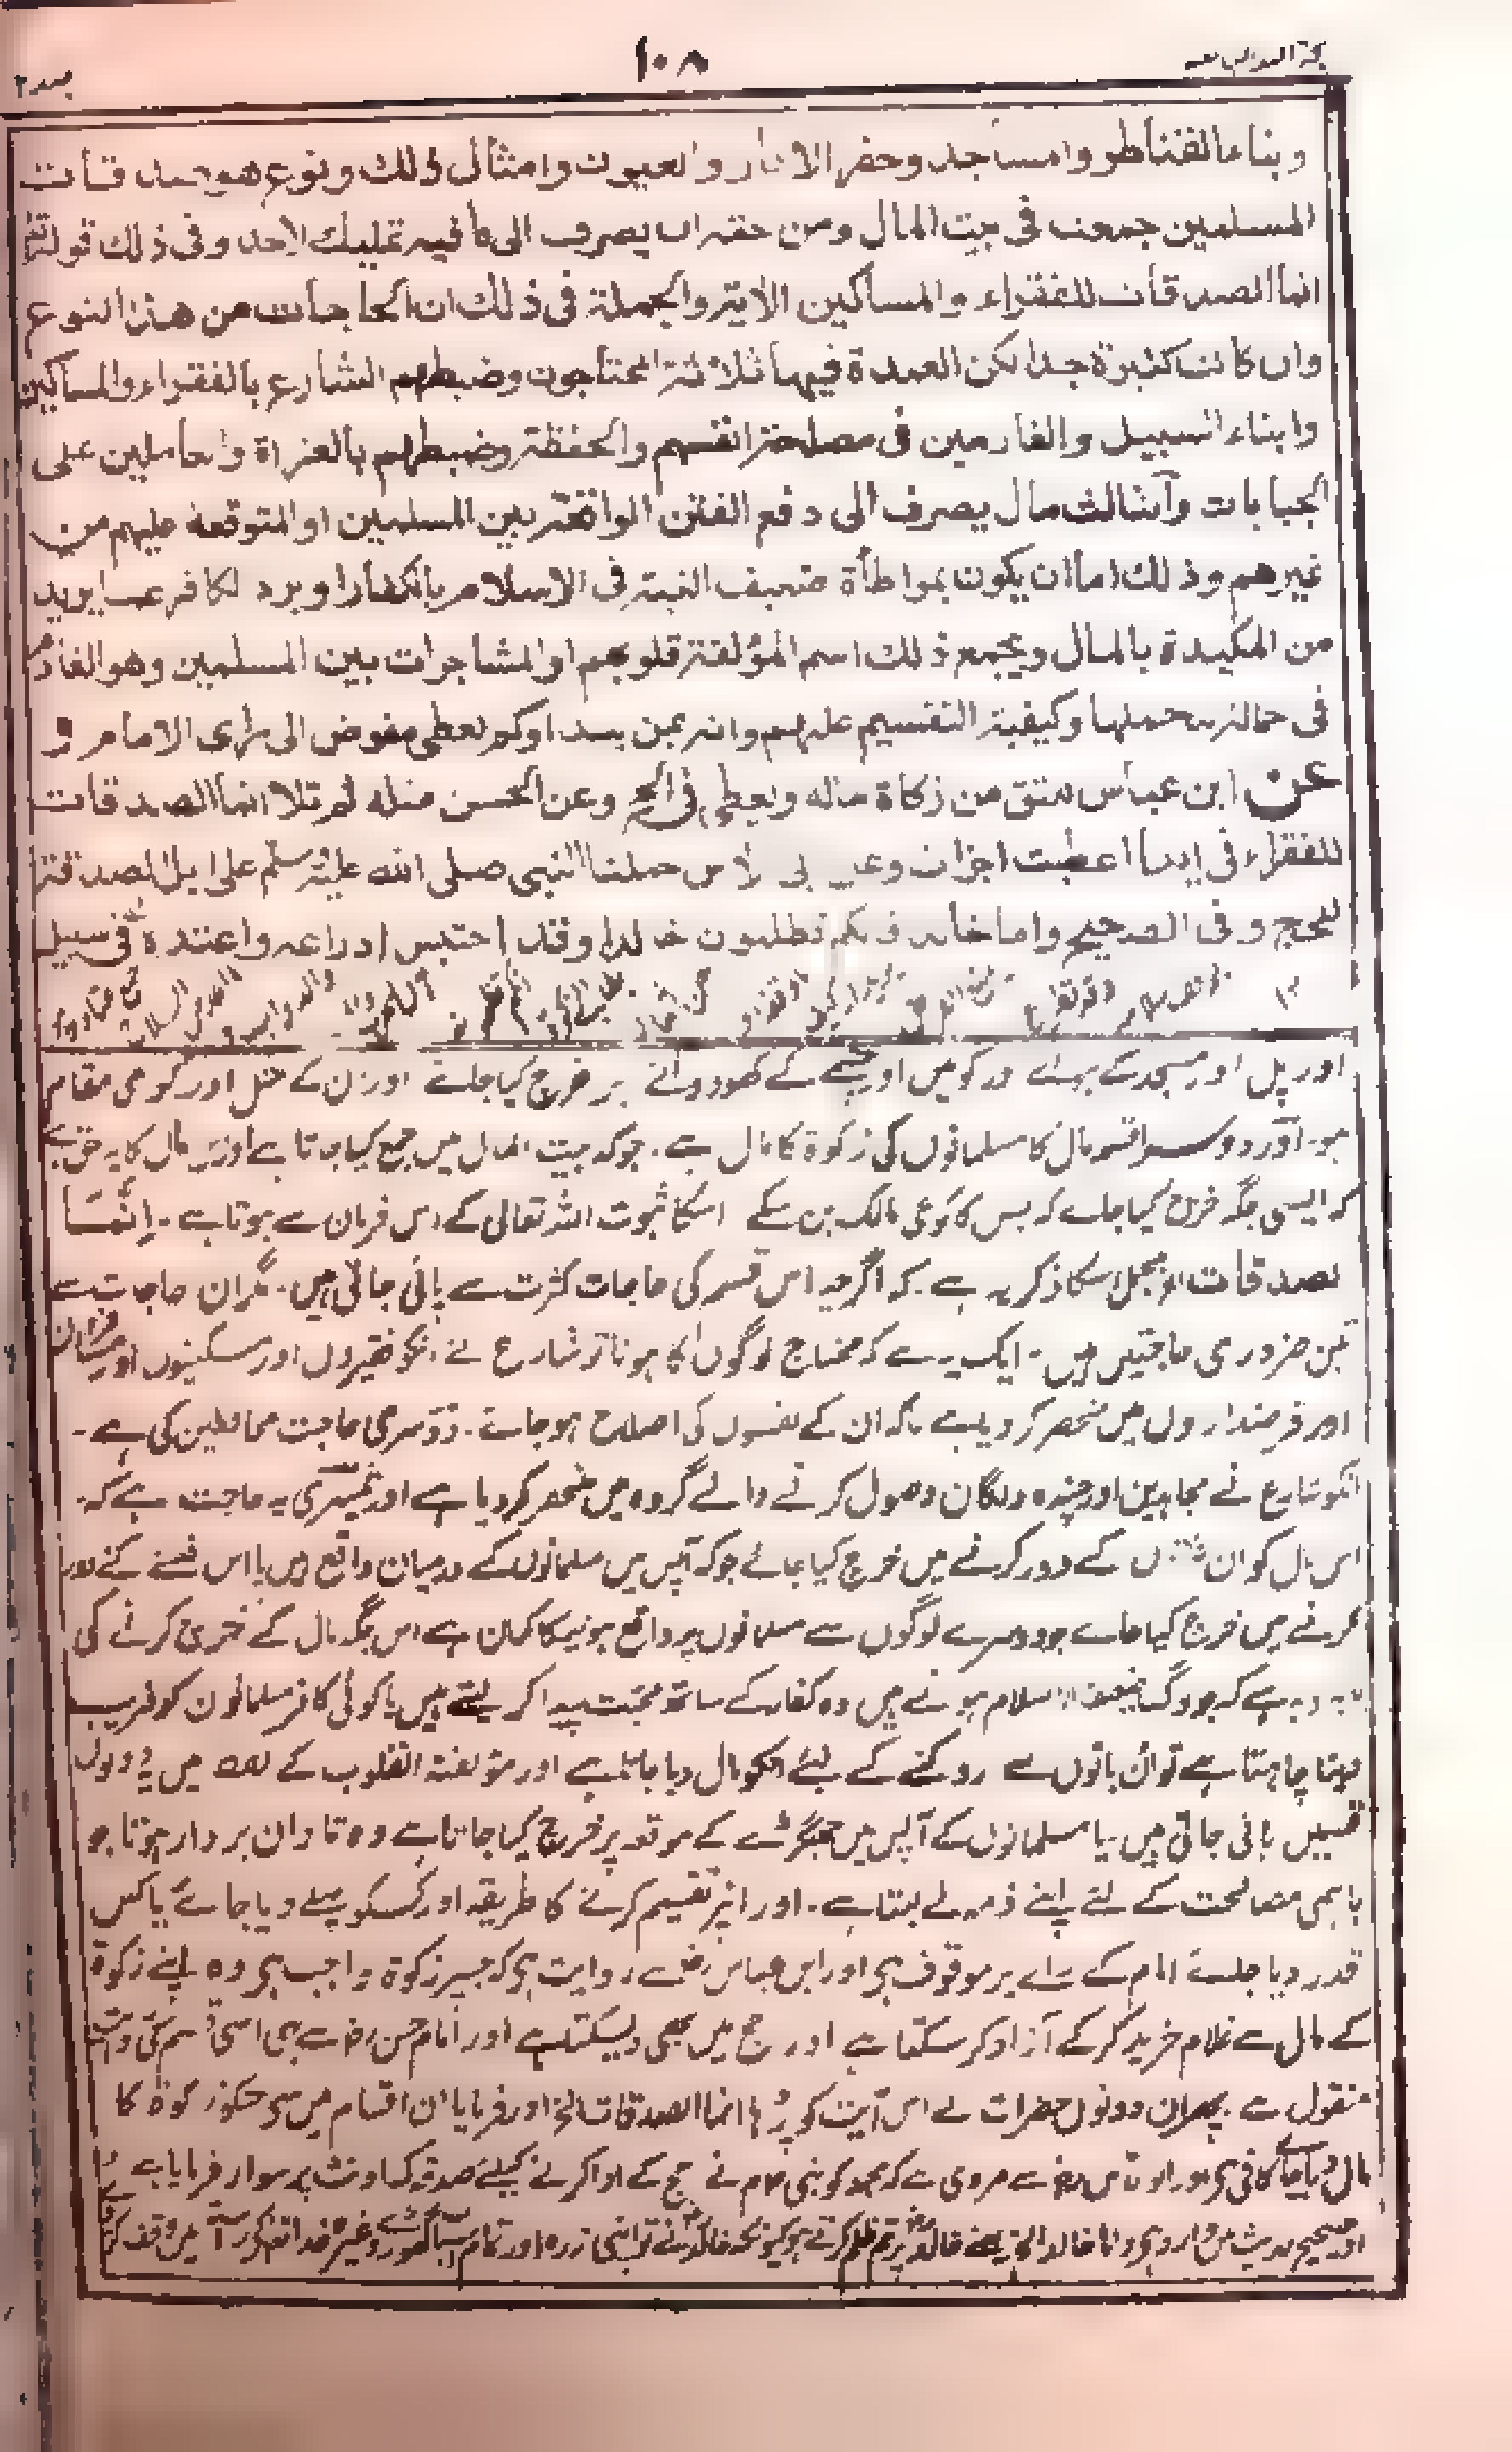 ١٠٨
وبناء القناطر والمساجد وحفر الآبار والعيون وامثال ذلك ونوع هو صدقات
المسلمين جمعت فى بيت المال ومن حقه ان يصرف الى ما فيه تمليك لاحد وفى ذلك قوله
انما الصدقات للفقراء والمساكين الآية والجملة فى ذلك ان الحاجات من هذا النوع
وان كانت كثيرة جدا لكن العمدة فيها ثلاثة المحتاجون وضبطهم الشارع بالفقراء والمساكين
وابناء السبيل والغارمين فى مصلحة انفسهم والحفظة وضبطهم بالغزاة والعاملين على
الجبايات وآلثالث مال يصرف الى دفع الفتن الواقعة بين المسلمين او المتوقعة عليهم من
غيرهم وذلك اما ان يكون بمواطأة ضعيف النية فى الاسلام بالكفار او برد الكافر عما يريد
من المكيدة بالمال ويجمع ذلك اسم المؤلفة قلوبهم او المشاجرات بين المسلمين وهو الغارم
فى حمالة يتحملها وكيفية التقسيم عليهم وانه بمن يبدا وكم يعطى مفوض الى راى الامام و
عن ابن عباس يعتق من زكاة ماله ويعطى فى الحج وعن الحسن مثله ثم تلا انما الصدقات
للفقراء فى ايها اعطيت اجزات وعن ابى لاس حملنا النبى صلى الله عليه وسلم على ابل الصدقة
للحج وفى الصحيح واما خالد فانكم تظلمون خالدا وقد احتبس ادراعه واعتده فى سبيل
اور پل اور مسجد کے اور کوئیں اور چشمے کے کھودوانے پر خرچ کیا جائے اور ان کے مثل اور کوئی مقام
ہو۔ اور دوسرا قسم مال کا مسلمانوں کی زکوۃ کا مال ہے۔ جوکہ بیت المال میں جمع کیا جاتا ہے اور اس مال کا یہ حق ہے
کہ ایسی جگہ خرچ کیا جائے کہ جس کا کوئی مالک بن سکے اسکا ثبوت اللہ تعالی کے اس فرمان سے ہوتا ہے۔ اِنَّمَا
الصدقات الخ مجمل اسکا ذکر یہ ہے کہ اگرچہ اس قسم کی حاجات کثرت سے پائی جاتی ہیں۔ مگر ان حاجات سے
تین ضروری حاجتیں ہیں۔ ایک یہ ہے کہ محتاج لوگوں کا ہونا تو شارع نے انکو فقیروں اور مسکینوں اور مسافران
اور قرضداروں میں منحصر کر دیا ہے تاکہ ان کے نفسوں کی اصلاح ہوجائے۔ دوسری حاجت محافظین کی ہے۔
انکو شارع نے مجاہدین اور چندہ و لگان وصول کرنے والے گروہ میں منحصر کردیا ہے اور تیسری یہ حاجت ہے کہ
اس مال کو ان کے دور کرنے میں خرچ کیا جائے جوکہ آپس میں مسلمانوں کے درمیان واقع ہیں یا اس فتنے کے دور
کرنے میں خرچ کیا جاے جو دوسرے لوگوں سے مسلمانوں پر واقع ہونیکا گمان ہے اس جگہ مال کے خرچ کرنے کی
وجہ یہ ہے کہ جو لوگ ضعیف الاسلام ہونے ہیں وہ کفار کے ساتھ محبت پیدا کر لیتے ہیں یا کوئی کافر مسلمانوں کو فریب
دینا چاہتا ہے تو ان باتوں سے روکنے کے لئے انکو مال دیا جاتا ہے اور مؤلفۃ القلوب کے لفظ میں یہ دونوں
قسمیں پائی جاتی ہیں یا مسلمانوں کے آپس میں جھگڑے کے موقعہ پر خرچ کیا جاتا ہے وہ تاوان بردار ہوتا جو
باہمی مصالحت کے لئے اپنے ذمہ لے لیتا ہے۔ اور انپر تقسیم کرنے کا طریقہ اور کسکو پہلے دیا جائے یا کس
قدر دیا جائے امام کے رائے پر موقوف ہے اور ابن عباس رض سے روایت ہے کہ جسپر زکوۃ واجب ہے وہ اپنے زکوۃ
کے مال سے غلام خرید کر کے آزاد کر سکتا ہے اور حج میں بھی دیسکتا ہے اور امام حسن رض سے بھی اسی قسم کی روایت
منقول ہے پھر ان دونوں حضرات نے اس آیت کو پڑہا انما الصدقات الخ اور فرمایا ان اقسام میں سے جسکو زکوۃ کا
مال دیا جائے کافی ہے اور ابو لاس رض سے مروی ہے کہ ہمکو نبی صلعم نے حج کے ادا کرنے کیلئے صدقہ کے اونٹ پر سوار فرمایا ہے
اور صحیح حدیث میں وارد ہے واما خالد الخ یعنے خالد پر تم ظلم کرتے ہو کیونکہ خالد نے تو اپنی زرہ اور تمام اسباب گھوڑے وغیرہ خدا تعالی کے راستے میں وقف کر